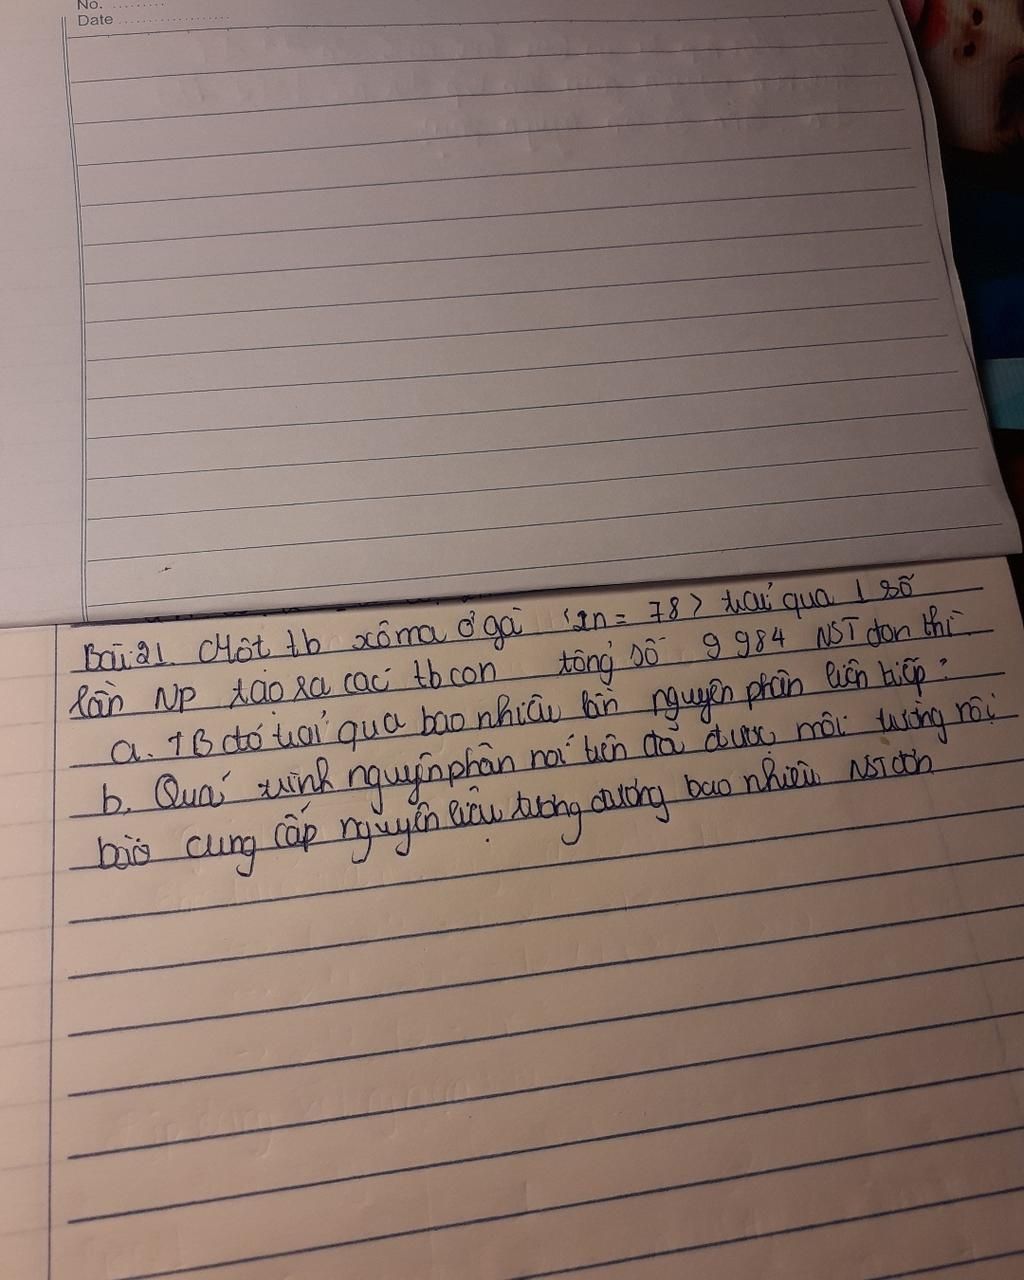 No. .........
Date ...................
Bài 21. Một tb xôma ở gà (2n = 78) trải qua 1 số
lần NP tạo ra các tb con tổng số 9 984 NST đơn thì
a. TB đó trải qua bao nhiêu lần nguyên phân liên tiếp?
b. Quá trình nguyên phân nói trên đã được môi trường nội
bào cung cấp nguyên liệu tương đương bao nhiêu NST đơn